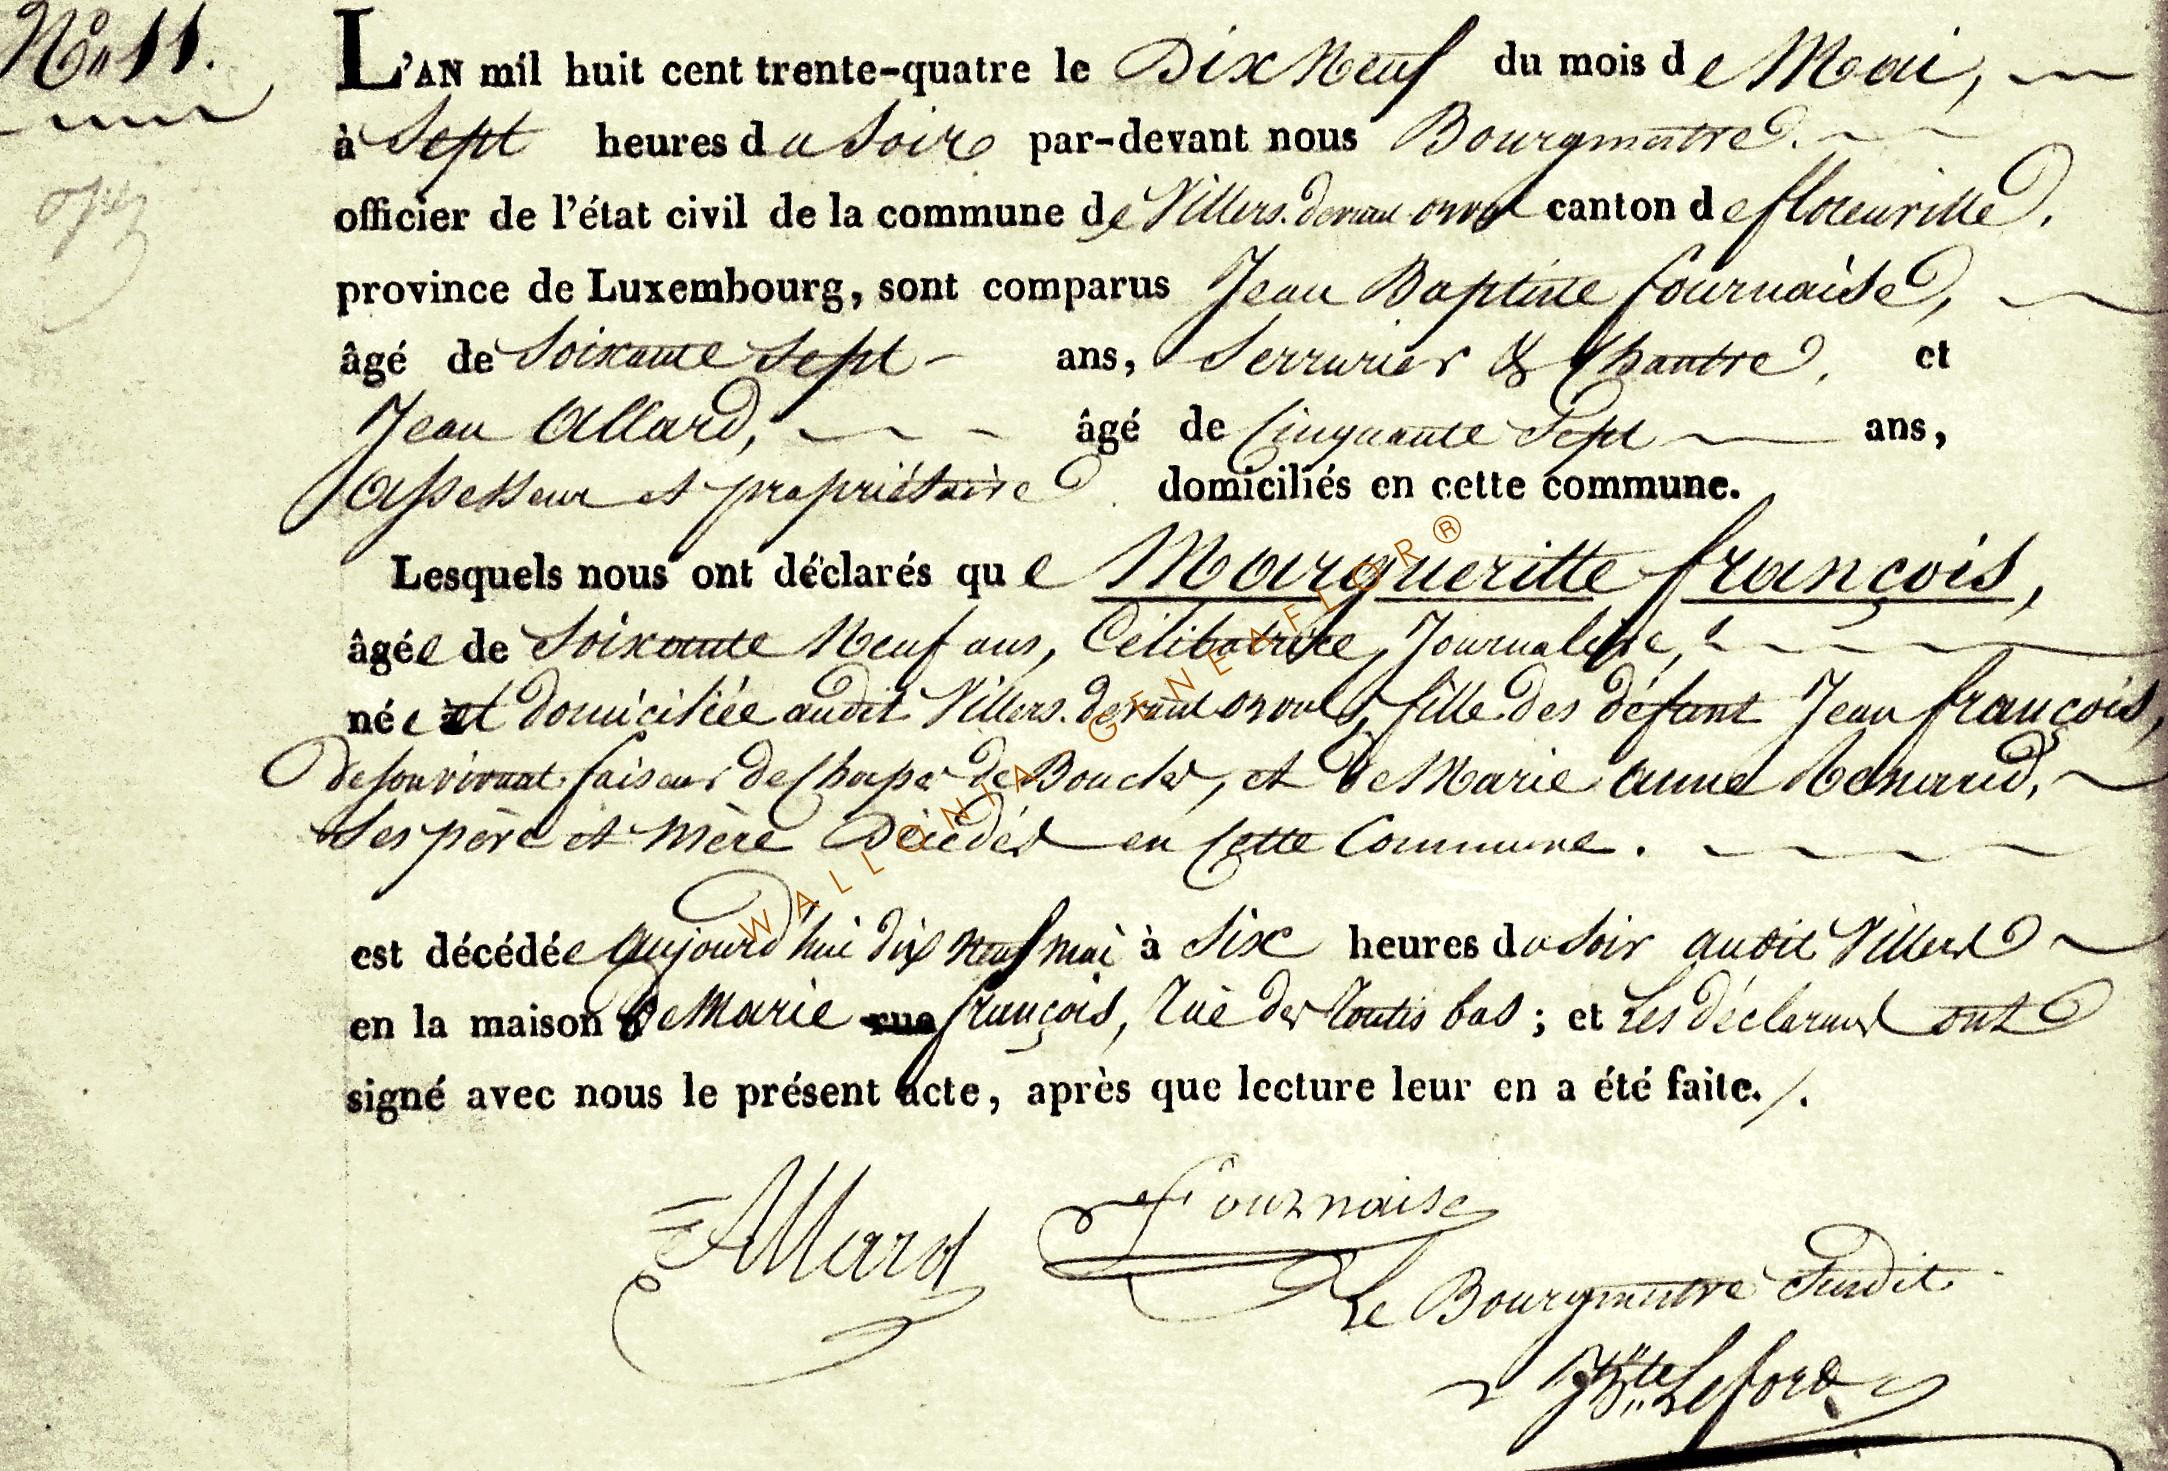 N° 11.
L'AN mil huit cent trente-quatre le Dix Neuf du mois de Mai,
à Sept heures du Soir par-devant nous Bourgmestre.
officier de l'état civil de la commune de Villers-devant orval canton de florenville,
province de Luxembourg, sont comparus Jean Baptiste fournaise,
âgé de Soixante Sept ans, Serrurier & Chantre, et
Jean Allard, âgé de Cinquante Sept ans,
assesseur et propriétaire domiciliés en cette commune.
Lesquels nous ont déclarés que Margueritte françois,
âgée de Soixante Neuf ans, Célibatrice, Journaliere,
née et domiciliée audit Villers-devant orval, fille des défunt Jean françois,
de son vivant faiseur de Chapes de Boucles, et de Marie anne Renaud,
Ses père et mère Décédés en Cette Commune.
est décédée aujourd'hui dix neuf mai à Six heures du Soir audit Villers
en la maison de Marie rue françois, rue des routis bas ; et Les déclarans ont
signé avec nous le présent acte, après que lecture leur en a été faite.
Allard Fournaise
Le Bourgmestre Susdit
JBte Leford
WALLONIA GENEAFLOR®